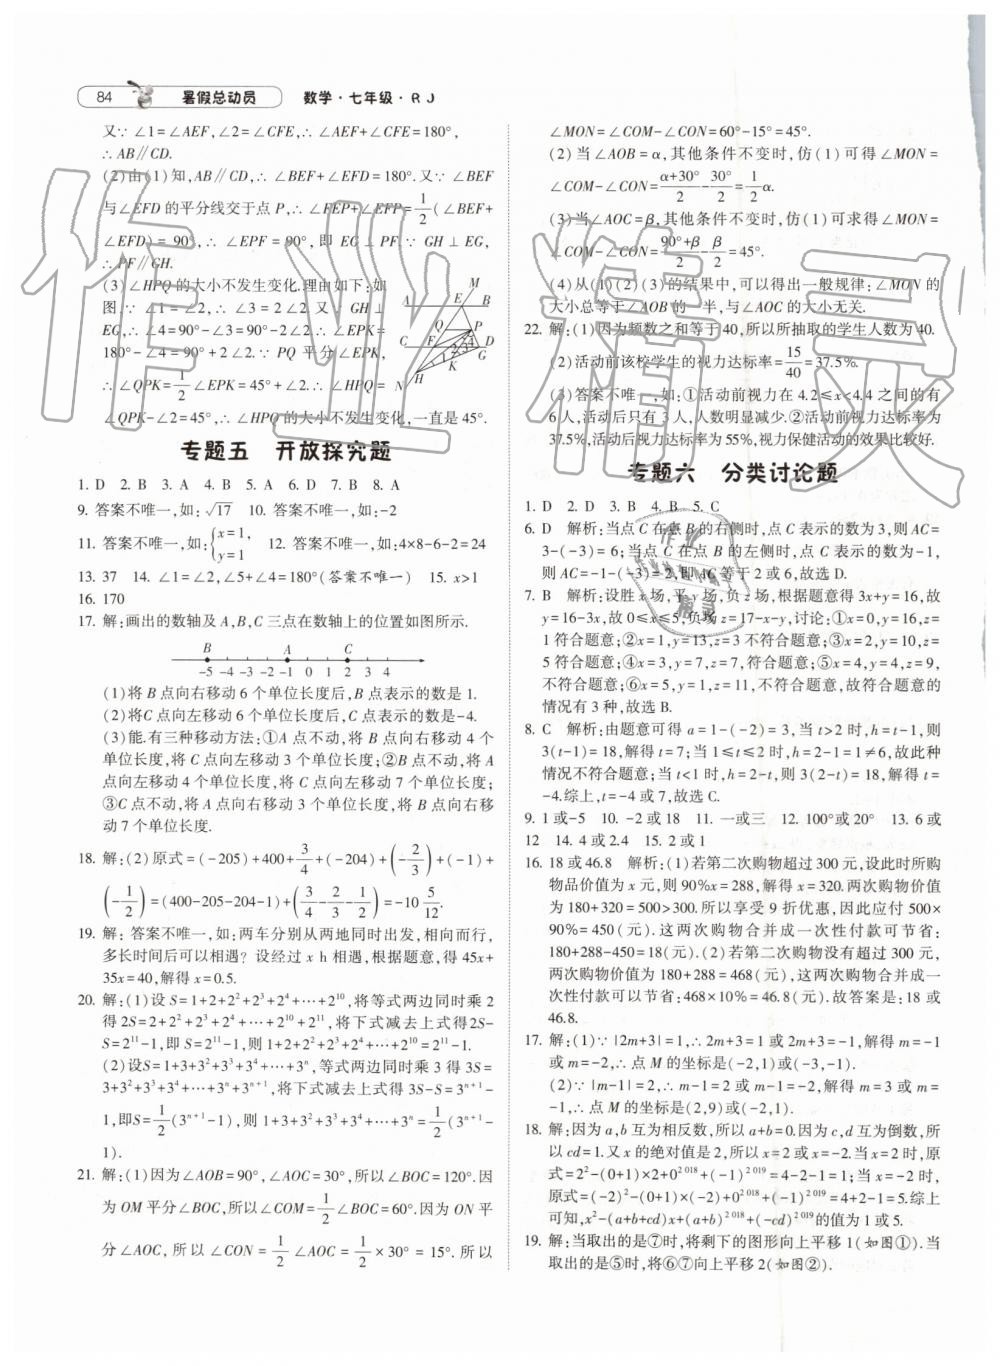 84 暑假总动员 数学·七年级·RJ
又∵∠1=∠AEF,∠2=∠CFE,∴∠AEF+∠CFE=180°,
∴AB∥CD.
(2)由(1)知,AB∥CD,∴∠BEF+∠EFD=180°.又∵∠BEF
与∠EFD的平分线交于点P,∴∠FEP+∠EFP=1/2(∠BEF+
∠EFD)=90°,∴∠EPF=90°,即EG⊥PF.∵GH⊥EG,
∴PF∥GH.
(3)∠HPQ的大小不发生变化.理由如下:如
图.∵∠1=∠2,∴∠3=2∠2.又∵GH⊥
EG,∴∠4=90°-∠3=90°-2∠2.∴∠EPK=
180°-∠4=90°+2∠2.∵PQ平分∠EPK,
∴∠QPK=1/2∠EPK=45°+∠2.∴∠HPQ=
∠QPK-∠2=45°,∴∠HPQ的大小不发生变化,一直是45°.
M
A E B
Q P
C F D
1 2 3 4 G
K
H
N
专题五 开放探究题
1. D 2. B 3. A 4. B 5. A 6. D 7. B 8. A
9. 答案不唯一,如:√17 10. 答案不唯一,如:-2
11. 答案不唯一,如:{x=1, y=1 12. 答案不唯一,如:4×8-6-2=24
13. 37 14. ∠1=∠2,∠5+∠4=180°(答案不唯一) 15. x>1
16. 170
17. 解:画出的数轴及A,B,C三点在数轴上的位置如图所示.
B A C
-5 -4 -3 -2 -1 0 1 2 3 4
(1)将B点向右移动6个单位长度后,B点表示的数是1.
(2)将C点向左移动6个单位长度后,C点表示的数是-4.
(3)能.有三种移动方法:①A点不动,将B点向右移动4个
单位长度,将C点向左移动3个单位长度;②B点不动,将A
点向左移动4个单位长度,将C点向左移动7个单位长度;
③C点不动,将A点向右移动3个单位长度,将B点向右移
动7个单位长度.
18. 解:(2)原式=(-205)+400+3/4+(-204)+(-2/3)+(-1)+
(-1/2)=(400-205-204-1)+(3/4-2/3-1/2)=-10 5/12.
19. 解:答案不唯一,如:两车分别从两地同时出发,相向而行,
多长时间后可以相遇?设经过x h相遇,根据题意,得45x+
35x=40,解得x=0.5.
20. 解:(1)设S=1+2+2²+2³+2⁴+…+2¹⁰,将等式两边同时乘2
得2S=2+2²+2³+2⁴+…+2¹⁰+2¹¹,将下式减去上式得2S-
S=2¹¹-1,即S=2¹¹-1,则1+2+2²+2³+2⁴+…+2¹⁰=2¹¹-1.
(2)设S=1+3+3²+3³+3⁴+…+3ⁿ,等式两边同时乘3得3S=
3+3²+3³+3⁴+…+3ⁿ+3ⁿ⁺¹,将下式减去上式得3S-S=3ⁿ⁺¹-
1,即S=1/2(3ⁿ⁺¹-1),则1+3+3²+3³+3⁴+…+3ⁿ=1/2(3ⁿ⁺¹-
1).
21. 解:(1)因为∠AOB=90°,∠AOC=30°,所以∠BOC=120°.因
为OM平分∠BOC,所以∠COM=1/2∠BOC=60°.因为ON平
分∠AOC,所以∠CON=1/2∠AOC=1/2×30°=15°.所以
∠MON=∠COM-∠CON=60°-15°=45°.
(2)当∠AOB=α,其他条件不变时,仿(1)可得∠MON=
∠COM-∠CON=(α+30°)/2-30°/2=1/2α.
(3)当∠AOC=β,其他条件不变时,仿(1)可求得∠MON=
∠COM-∠CON=(90°+β)/2-β/2=45°.
(4)从(1)(2)(3)的结果中,可以得出一般规律:∠MON的
大小总等于∠AOB的一半,与∠AOC的大小无关.
22. 解:(1)因为频数之和等于40,所以所抽取的学生人数为40.
(2)活动前该校学生的视力达标率=15/40=37.5%.
(3)答案不唯一,如:①活动前视力在4.2≤x<4.4之间的有
6人,活动后只有3人,人数明显减少.②活动前视力达标率为
37.5%,活动后视力达标率为55%,视力保健活动的效果比较好.
专题六 分类讨论题
1. D 2. D 3. B 4. B 5. C
6. D 解析:当点C在点B的右侧时,点C表示的数为3,则AC=
3-(-3)=6;当点C在点B的左侧时,点C表示的数为-1,
则AC=-1-(-3)=2,即AC等于2或6,故选D.
7. B 解析:设胜x场,平y场,负z场,根据题意得3x+y=16,故
y=16-3x,故0≤x≤5,负场z=17-x-y,讨论:①x=0,y=16,z=
1符合题意;②x=1,y=13,z=3不符合题意;③x=2,y=10,z=
5符合题意;④x=3,y=7,z=7,符合题意;⑤x=4,y=4,z=9,
不符合题意;⑥x=5,y=1,z=11,不符合题意,故符合题意的
情况有3种,故选B.
8. C 解析:由题意可得a=1-(-2)=3,当t>2时,h=t-1,则
3(t-1)=18,解得t=7;当1≤t≤2时,h=2-1=1≠6,故此种
情况不符合题意;当t<1时,h=2-t,则3(2-t)=18,解得t=
-4.综上,t=-4或7,故选C.
9. 1或-5 10. -2或18 11. 一或三 12. 100°或20° 13. 6或
12 14. 4或2.4 15. 2或1
16. 18或46.8 解析:(1)若第二次购物超过300元,设此时所购
物品价值为x元,则90%x=288,解得x=320.两次购物价值
为180+320=500>300.所以享受9折优惠,因此应付500×
90%=450(元).这两次购物合并成一次性付款可节省:
180+288-450=18(元).(2)若第二次购物没有超过300元,
两次购物价值为180+288=468(元),这两次购物合并成一
次性付款可以节省:468×10%=46.8(元).故答案是:18或
46.8.
17. 解:(1)∵|2m+3|=1,∴2m+3=1或2m+3=-1,解得m=-1
或m=-2,∴点M的坐标是(-2,1)或(-3,-1).
(2)∵|m-1|=2,∴m-1=2或m-1=-2,解得m=3或m=
-1,∴点M的坐标是(2,9)或(-2,1).
18. 解:因为a,b互为相反数,所以a+b=0.因为c,d互为倒数,所
以cd=1.又x的绝对值是2,所以x=2或x=-2.当x=2时,原
式=2²-(0+1)×2+0²⁰¹⁸+(-1)²⁰¹⁹=4-2-1=1;当x=-2时,
原式=(-2)²-(0+1)×(-2)+0²⁰¹⁸+(-1)²⁰¹⁹=4+2-1=5.综上
可知,x²-(a+b+cd)x+(a+b)²⁰¹⁸+(-cd)²⁰¹⁹的值为1或5.
19. 解:当取出的是⑦时,将剩下的图形向上平移1(如图①).当
取出的是⑤时,将⑥⑦向上平移2(如图②).
作业精灵